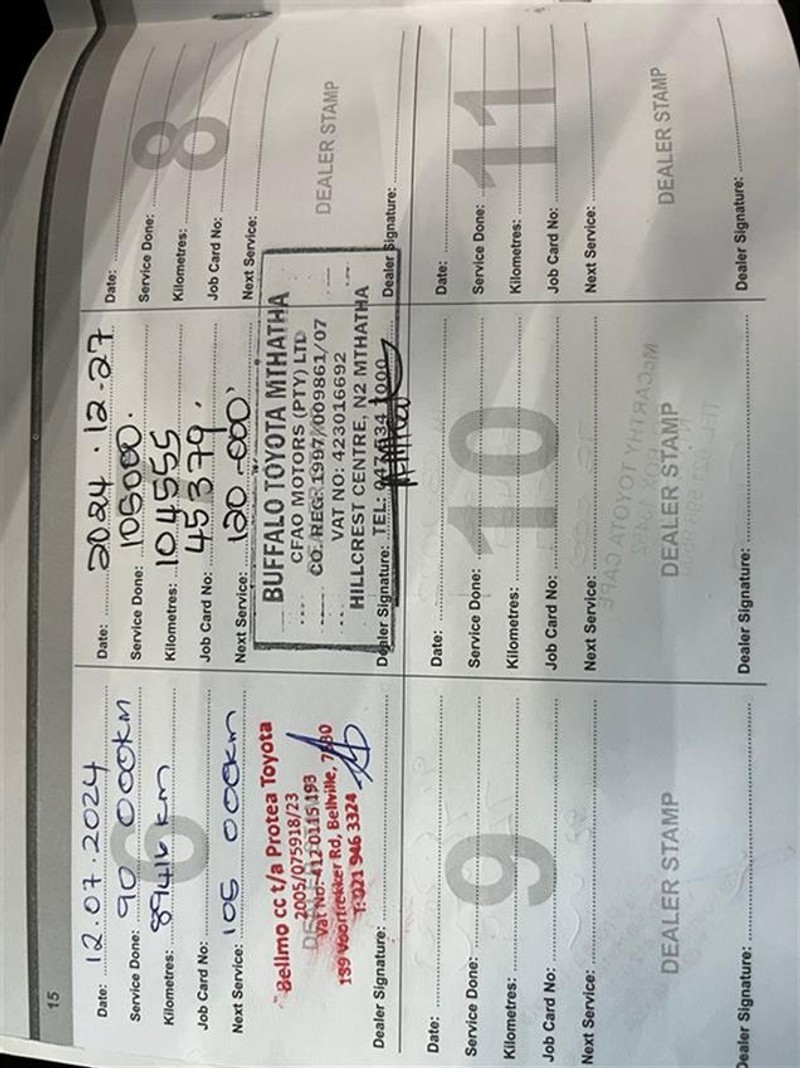 15
Date: 12.07.2024
Service Done: 90 000KM
Kilometres: 89416 km
Job Card No:
Next Service: 105 000km
6
Bellmo cc t/a Protea Toyota
2005/075918/23
Vat No: 412 0115 193
189 Voortrekker Rd, Bellville, 7530
T: 021 946 3324
Dealer Signature:
Date: 2024.12-27
Service Done: 105000.
Kilometres: 104555
Job Card No: 45379.
Next Service: 120-000
BUFFALO TOYOTA MTHATHA
CFAO MOTORS (PTY) LTD
CO. REG: 1997/009861/07
VAT NO: 423016692
HILLCREST CENTRE, N2 MTHATHA
TEL: 047 534 7000
Dealer Signature:
Date:
Service Done:
Kilometres:
Job Card No:
Next Service:
8
DEALER STAMP
Dealer Signature:
Date:
Service Done:
Kilometres:
Job Card No:
Next Service:
9
DEALER STAMP
Dealer Signature:
Date:
Service Done:
Kilometres:
Job Card No:
Next Service:
10
DEALER STAMP
Dealer Signature:
Date:
Service Done:
Kilometres:
Job Card No:
Next Service:
11
DEALER STAMP
Dealer Signature: